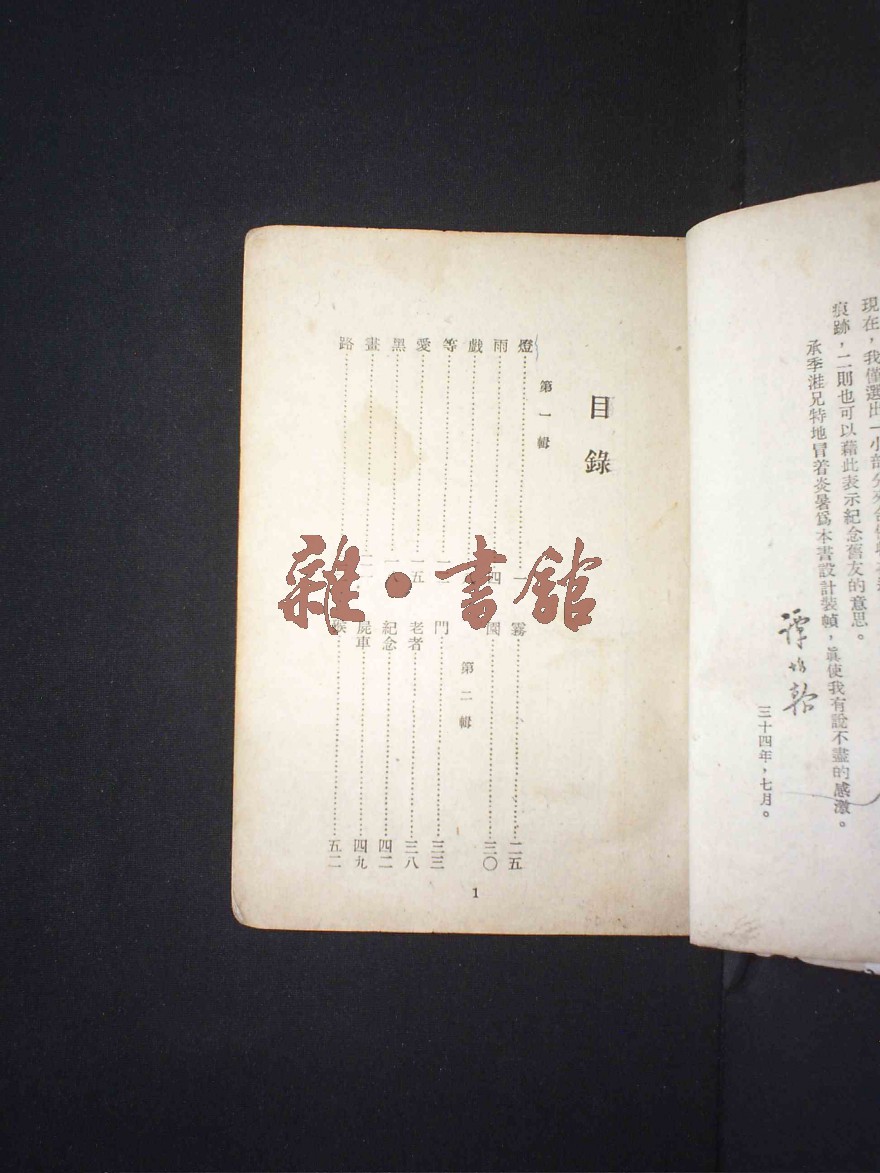 現在，我僅選出一小部分
痕跡，二則也可以藉此表示紀念舊友的意思。
承季淮兄特地冒着炎暑爲本書設計裝幀，眞使我有說不盡的感激。
三十四年，七月。
目錄
第一輯
燈……一
雨……四
戲……
等……一
愛……一五
黑……一
畫……二
路……
霧……二五
園……三〇
第二輯
門……三三
老者……三八
紀念……四二
屍車……四九
……五二
1
雜·書館